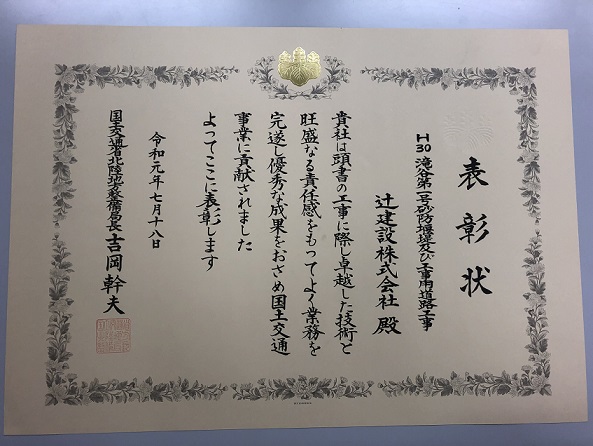 表彰状
H30 滝谷第一号砂防堰堤及び工事用道路工事
辻建設株式会社 殿
貴社は頭書の工事に際し卓越した技術と
旺盛なる責任感をもってよく業務を
完遂し優秀な成果をおさめ国土交通
事業に貢献されました
よってここに表彰します
令和元年七月十八日
国土交通省北陸地方整備局長 吉岡幹夫